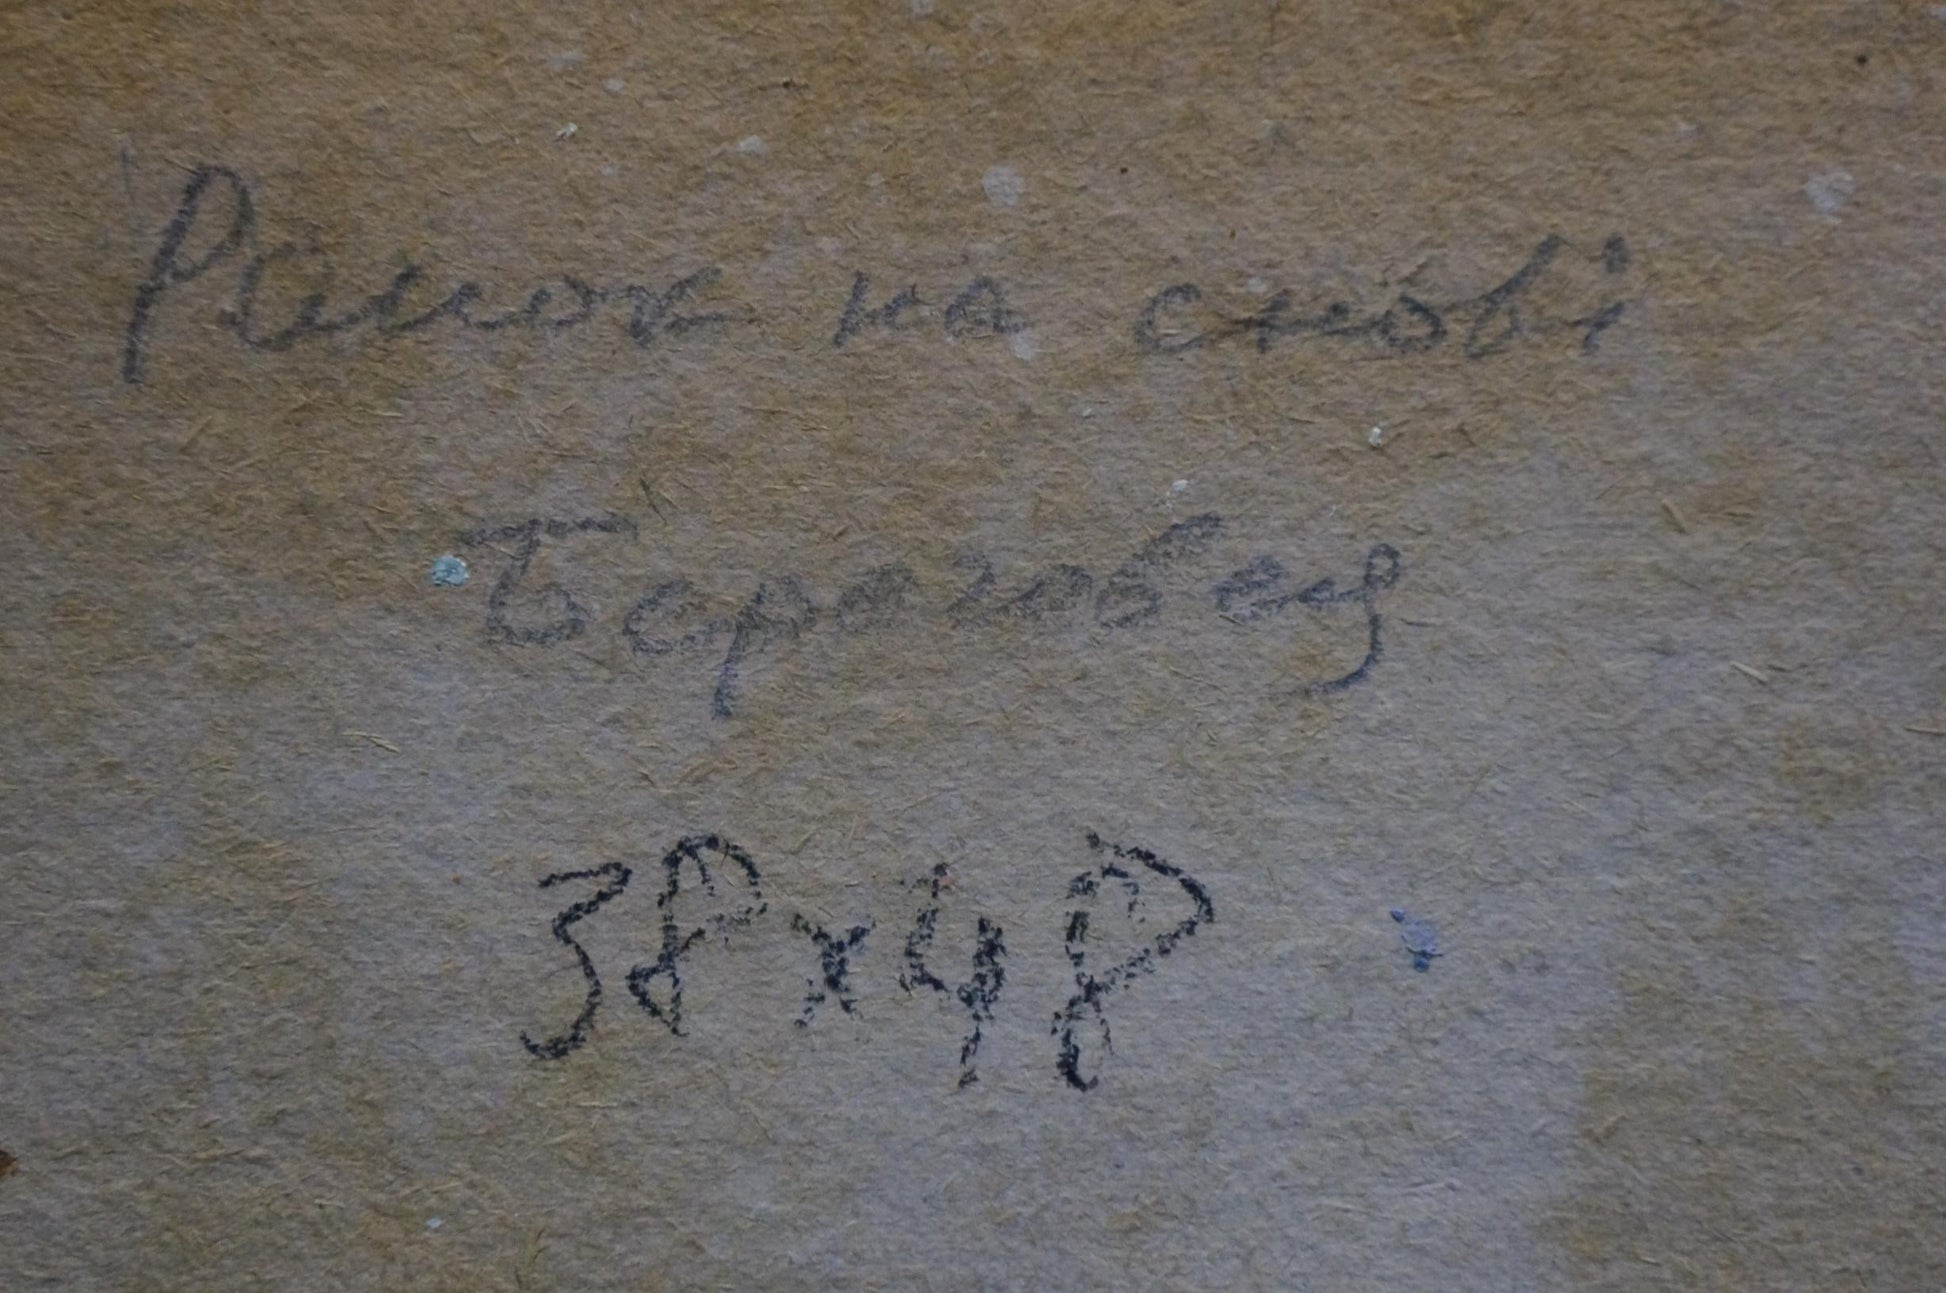 Ранок на Снові
Береговец
38х48